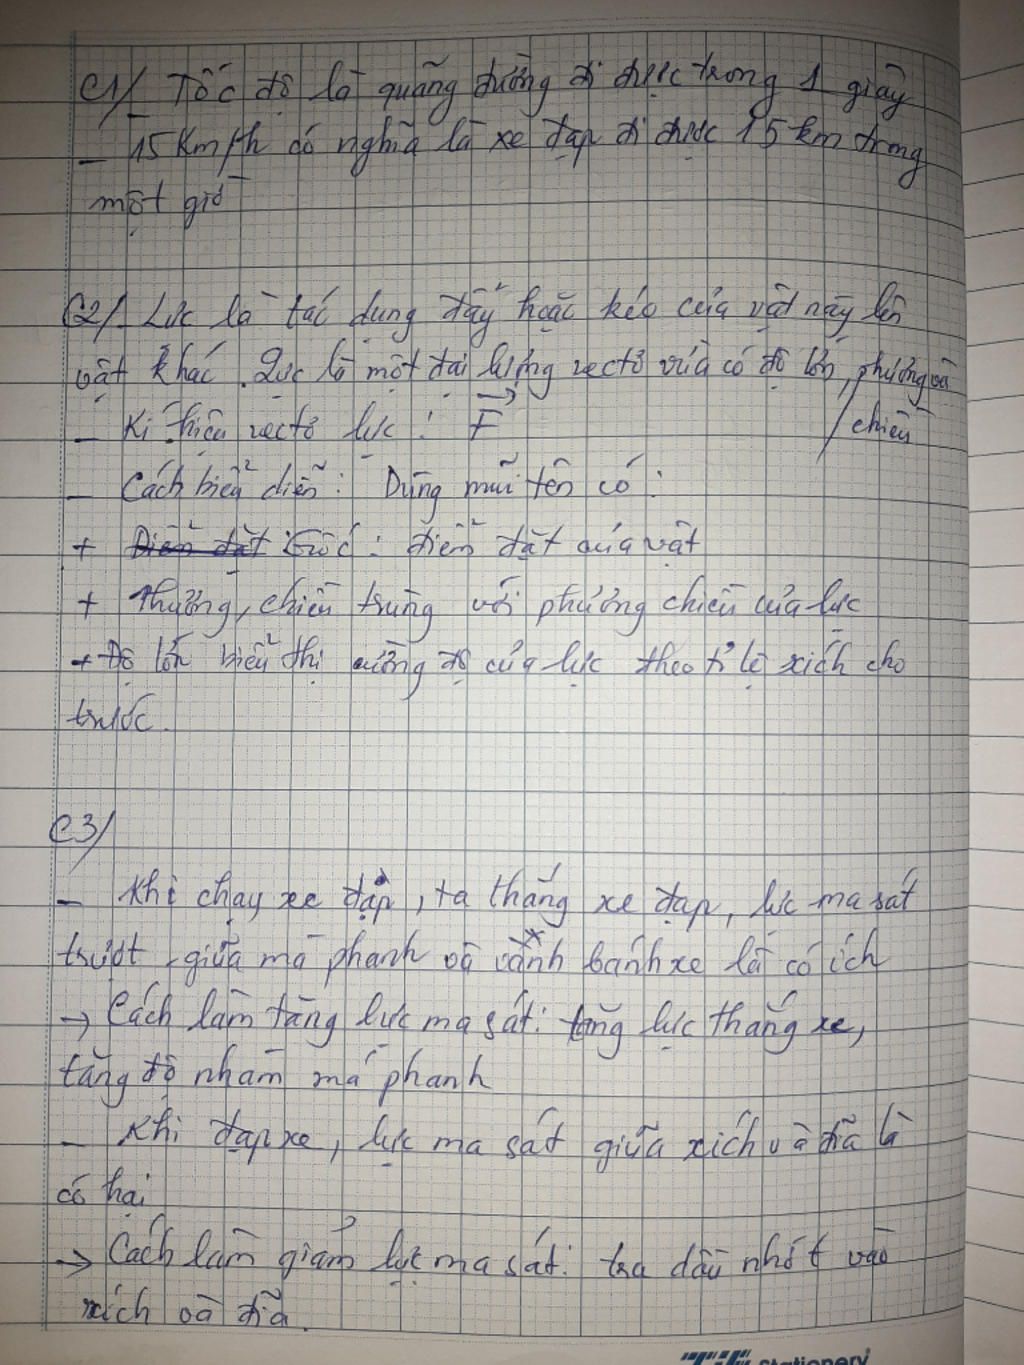 C1/ Tốc độ là quãng đường đi được trong 1 giây
- 15 Km/h có nghĩa là xe đạp đi được 15 km trong
một giờ
C2/. Lực là tác dụng đẩy hoặc kéo của vật này lên
vật khác. Lực là một đại lượng vectơ vừa có độ lớn, phương và
/chiều
- Kí hiệu vectơ lực : F
- Cách biểu diễn : Dùng mũi tên có :
+ Điểm đặt Gốc : điểm đặt của vật
+ Phương, chiều trùng với phương chiều của lực
+ Độ lớn biểu thị cường độ của lực theo tỉ lệ xích cho
trước.
C3/
- Khi chạy xe đạp, ta thắng xe đạp, lực ma sát
trượt giữa má phanh và vành bánh xe là có ích
→ Cách làm tăng lực ma sát : tăng lực thắng xe,
tăng độ nhám má phanh
- Khi đạp xe, lực ma sát giữa xích và đĩa là
có hại
→ Cách làm giảm lực ma sát : tra dầu nhớt vào
xích và đĩa.
stationery